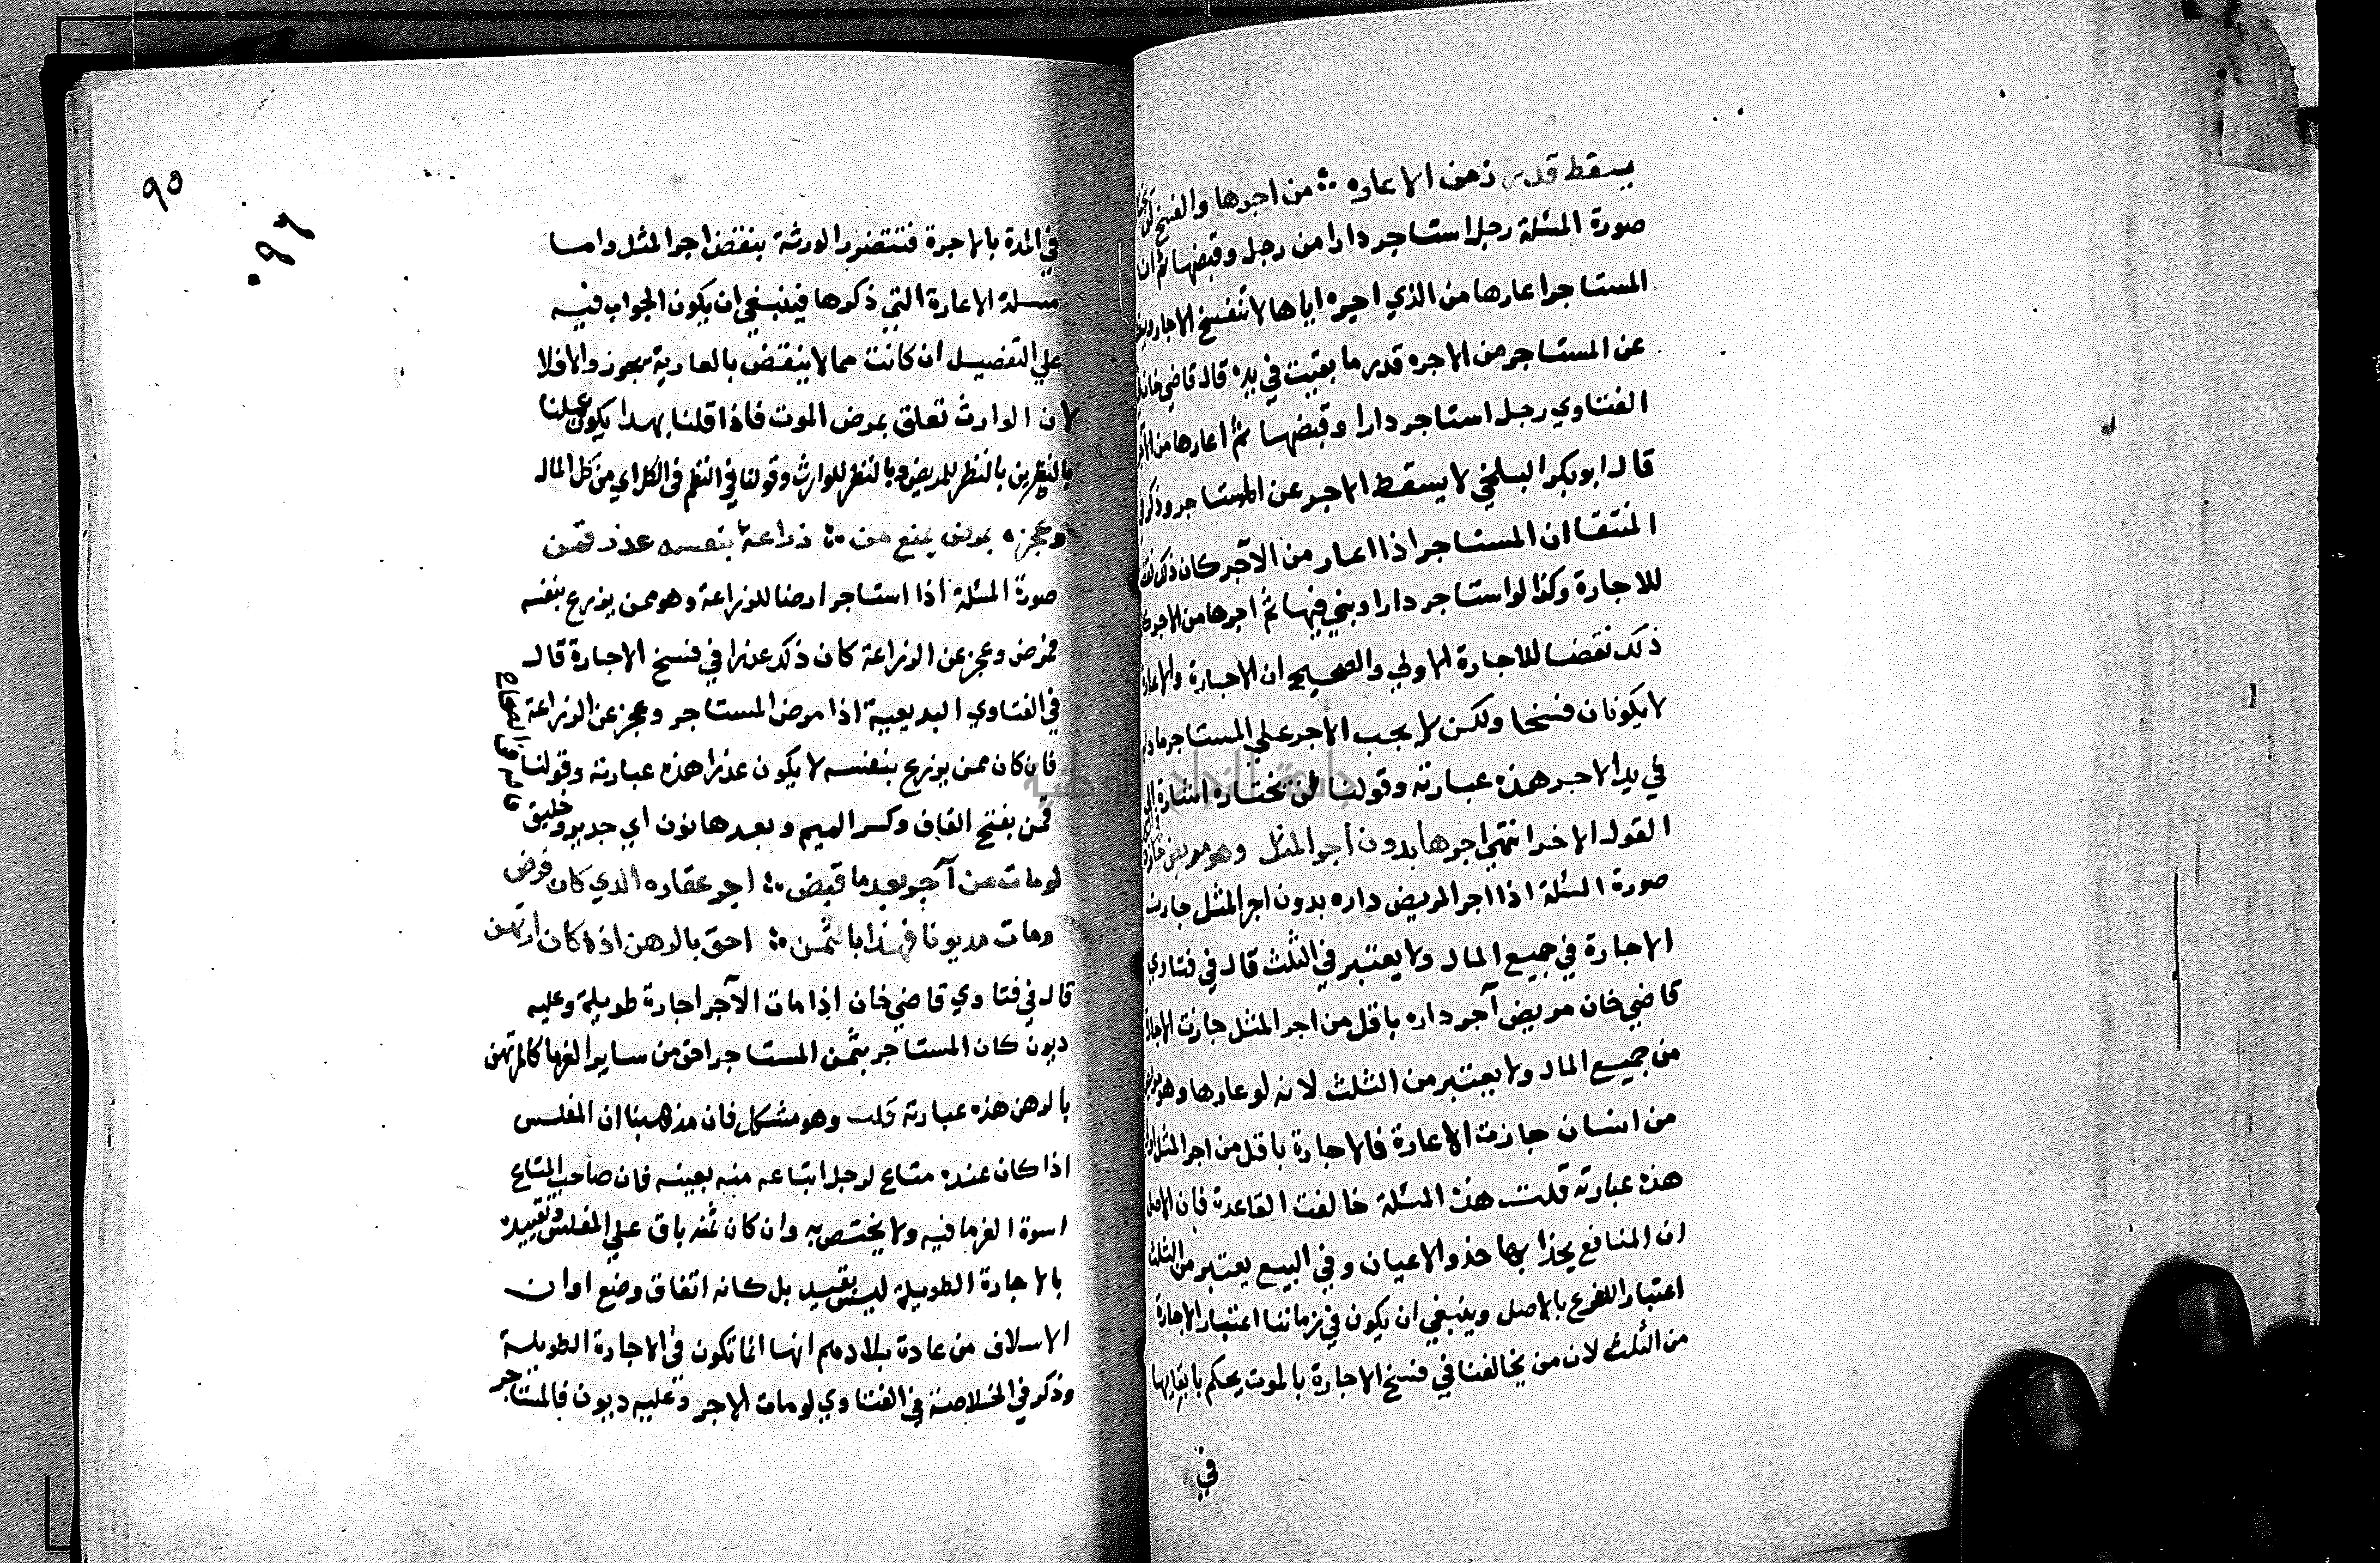 يسقط قدر زمن الاعاره ؞ من اجرها والفسخ لن
صورة المسئلة رجل استاجر دارا من رجل وقبضها ثم ان
المستاجر اعارها من الذي اجره اياها لا تنفسخ الاجارة
عن المستاجر من الاجره قدر ما بقيت في يده قال قاضي خان
الفتاوي رجل استاجر دارا وقبضها ثم اعارها من
قال ابو بكر البلخي لا يسقط الاجر عن المستاجر وذكر في
المنتقا ان المستاجر اذا اعار من الآجر كان ذلك
للاجارة وكذا لو استاجر دارا وبني فيها ثم اجرها من الاجر
ذلك نقضا للاجارة الاولي والصحيح ان الاجارة والاعارة
لا يكونان فسخا ولكن لا يجب الاجر علي المستاجر
في يد الاجر هذه عبارته وقولنا لن تختاره اشارة الي
القول الاخر انتهي اجرها بدون اجر المثل وهو مريض
صورة المسئلة اذا اجر المريض داره بدون اجر المثل جازت
الاجارة في جميع المال ولا يعتبر في الثلث قال في فتاوي
قاضي خان مريض آجر داره باقل من اجر المثل جازت الاجارة
من جميع المال ولا يعتبر من الثلث لانه لو عارها وهو مريض
من انسان جازت الاعارة فالاجارة باقل من اجر المثل
هذه عبارته قلت هذه المسئلة خالفت القاعدة فان الاصل
ان المنافع يحذا بها حذو الاعيان وفي البيع يعتبر من الثلث
اعتبار الفرع بالاصل وينبغي ان يكون في زماننا اعتبار الاجارة
من الثلث لان من يخالفنا في فسخ الاجارة بالموت يحكم بابقايها
في
٩٥
٠٩٦
في المدة بالاجرة فتتضرر الورثة بنقض اجر المثل واما
مسلة الاعارة التي ذكرها فينبغي ان يكون الجواب فيه
علي التفصيل ان كانت مما لا ينقض بالعارية يجوز والا فلا
لان الوارث تعلق بمرض الموت فاذا قلنا بهدا يكون عملنا
بالنظرين بالنظر للمريض وبالنظر للوارث وقولنا في النظم في الكل اي من كل المال
وعجزه بمرض يمنع من ؞ زراعة بنفسه عذر قمن
صورة المسئلة اذا استاجر ارضا للزراعة وهو ممن يزرع بنفسه
فمرض وعجز عن الزراعة كان ذلك عذرا في فسخ الاجارة قال
في الفتاوي البديعية اذا مرض المستاجر وعجز عن الزراعة
فان كان ممن يزرع بنفسه لا يكون عذرا هذه عبارته وقولنا
قمن بفتح القاف وكسر الميم وبعدها نون اي جدير وخليق
لو مات من آجر بعد ما قبض ؞ اجر عقاره الذي كان فرض
ومات مديونا فهذا بالثمن ؞ احق بالرهن اذا كان ارتهن
قال في فتاوي قاضي خان اذا مات الآجر اجارة طويلة وعليه
ديون كان المستاجر بثمن المستاجر احق من ساير الغرما كالمرتهن
بالرهن هذه عبارته قلت وهو مشكل فان مذهبنا ان المفلس
اذا كان عنده متاع لرجل ابتاعه منه بعينه فان صاحب المتاع
اسوة الغرما فيه ولا يختص به وان كان ثمنه باق علي المفلس وتقييده
بالاجارة الطويلة ليس بقيد بل كانه اتفاق وضع اوان
الاسلاف من عادة بلادهم انها انما تكون في الاجارة الطويلة
وذكر في الخلاصة في الفتاوي لو مات الاجر وعليه ديون فالمستاجر